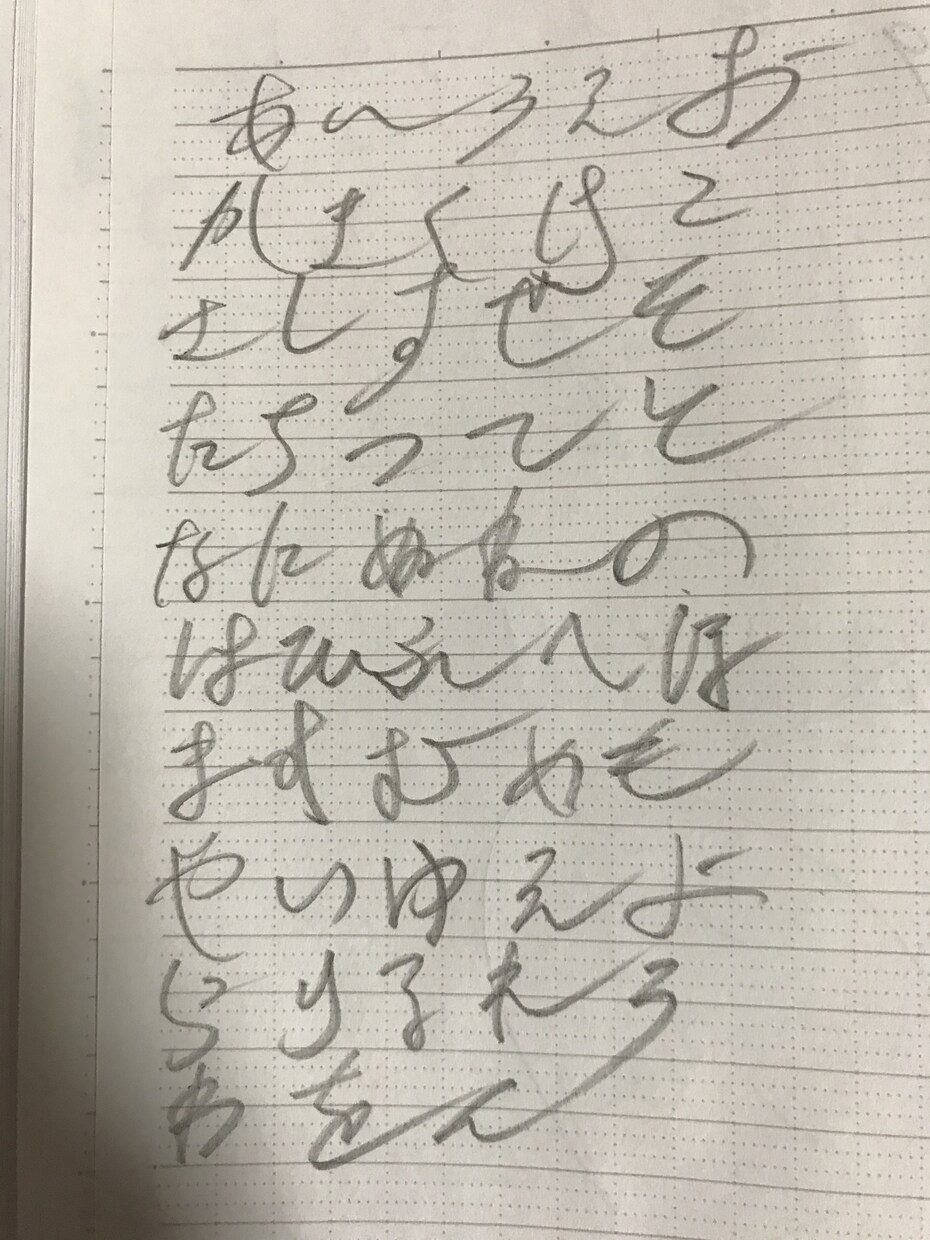 あいうえお
かきくけこ
さしすせそ
たちつてと
なにぬねの
はひふへほ
まみむめも
やいゆえよ
らりるれろ
わをん